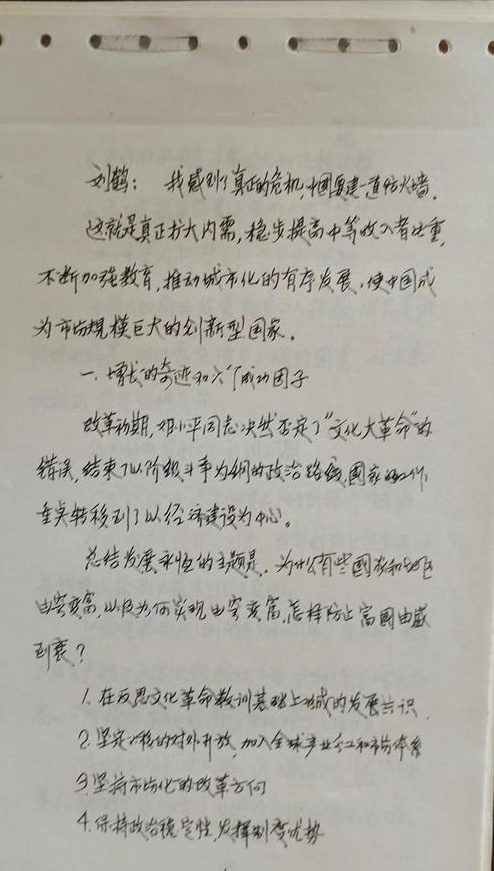 刘鹤： 我感到了真正的危机，中国要建一道防火墙。
这就是真正扩大内需，稳步提高中等收入者比重，
不断加强教育，推动城市化的有序发展，使中国成
为市场規模巨大的创新型国家。
一、增长的奇迹和六个成功因子
改革初期，邓小平同志决然否定了“文化大革命”的
错误，结束了以阶级斗争为纲的政治路线，國家的工作
重点转移到了以经济建设为中心。
总结发展永恒的主题是，为什么有些國家和地区
由穷变富，以及如何实现由穷变富，怎样防止富國由盛
到衰？
1. 在反思文化革命教训基础上形成的发展共识
2. 坚定不移的对外开放，加入全球产业分工和市场体系
3. 坚持市场化的改革方向
4. 保持政治稳定性，发挥到优势